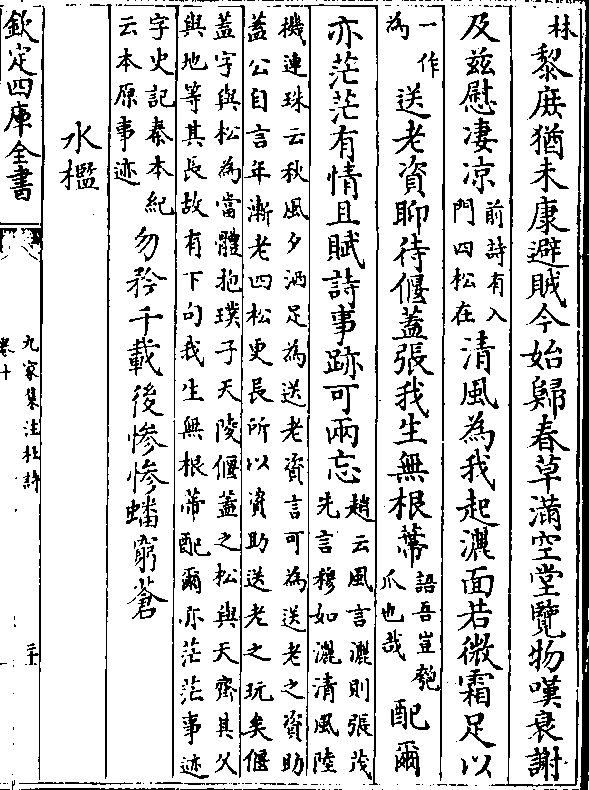 林黎庶猶未康避賊今始歸春草滿空堂覽物嘆衰謝
及兹慰淒凉前詩有入門四松在清風為我起灑面若微霜足以
一作為送老資聊待偃蓋張我生無根蒂語吾豈匏爪也哉配爾
亦茫茫有情且賦詩事跡可兩忘趙云風言灑則張茂先言穆如灑清風陸
機連珠云秋風夕洒足為送老資言可為送老之資助
蓋公自言年漸老四松更長所以資助送老之玩矣偃
蓋字與松為當體抱璞子天陵偃蓋之松與天齊其乆
與地等其長故有下句我生無根蒂配爾亦茫茫事迹
字史記秦本紀云本原事迹勿矜千載後惨惨蟠穹蒼
水檻
欽定四庫全書
九家集注杜詩
卷十
三十